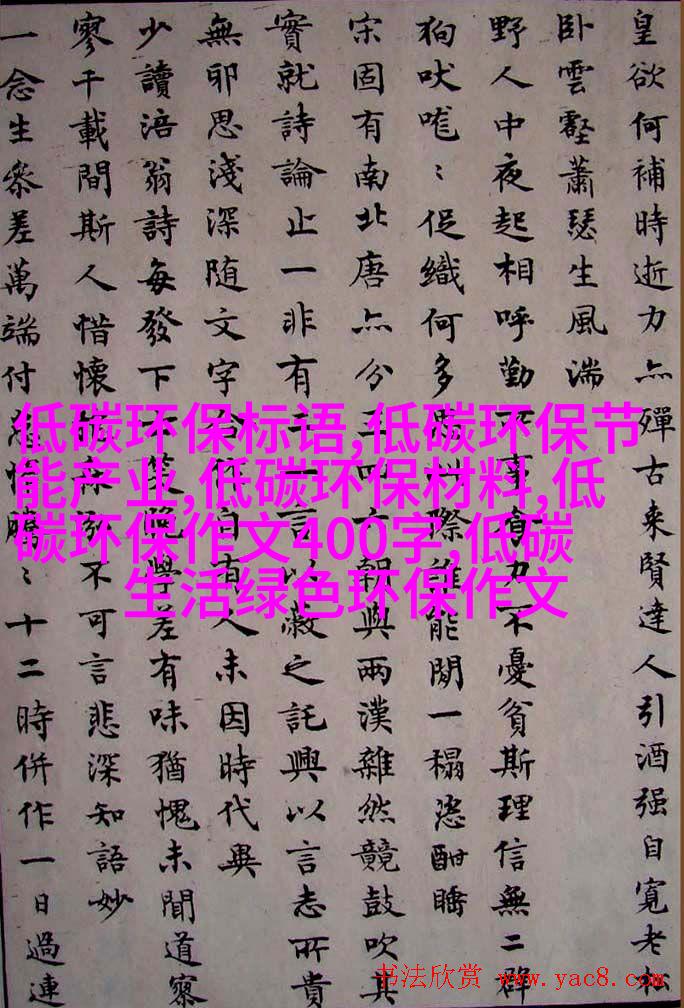 皇欲何補時逝力亦殫古来賢達人引酒强自寛老
卧雲壑蕭瑟生風湍
野人中夜起相呼勤 有力不憂貧斯理信無二群
狗吠嘊〻促織何多 際誰能閉一榻恣酣睡
宋固有南北唐亦分 報與兩漢雖然競鼓吹其
實就詩論止一非有 言以蔽之託興以言志所貴
無邪思淺深随文字 自有人未因時代異
少讀涪翁詩每發下 學差有味猶愧未聞道察
寥千載間斯人惜懷 不可言悲深知語妙
一念生參差萬端付 〻十二時併作一日過連
低碳环保标语,低碳环保节
能产业,低碳环保材料,低
碳环保作文400字,低碳
生活绿色环保作文
书法欣赏 www.yac8.com